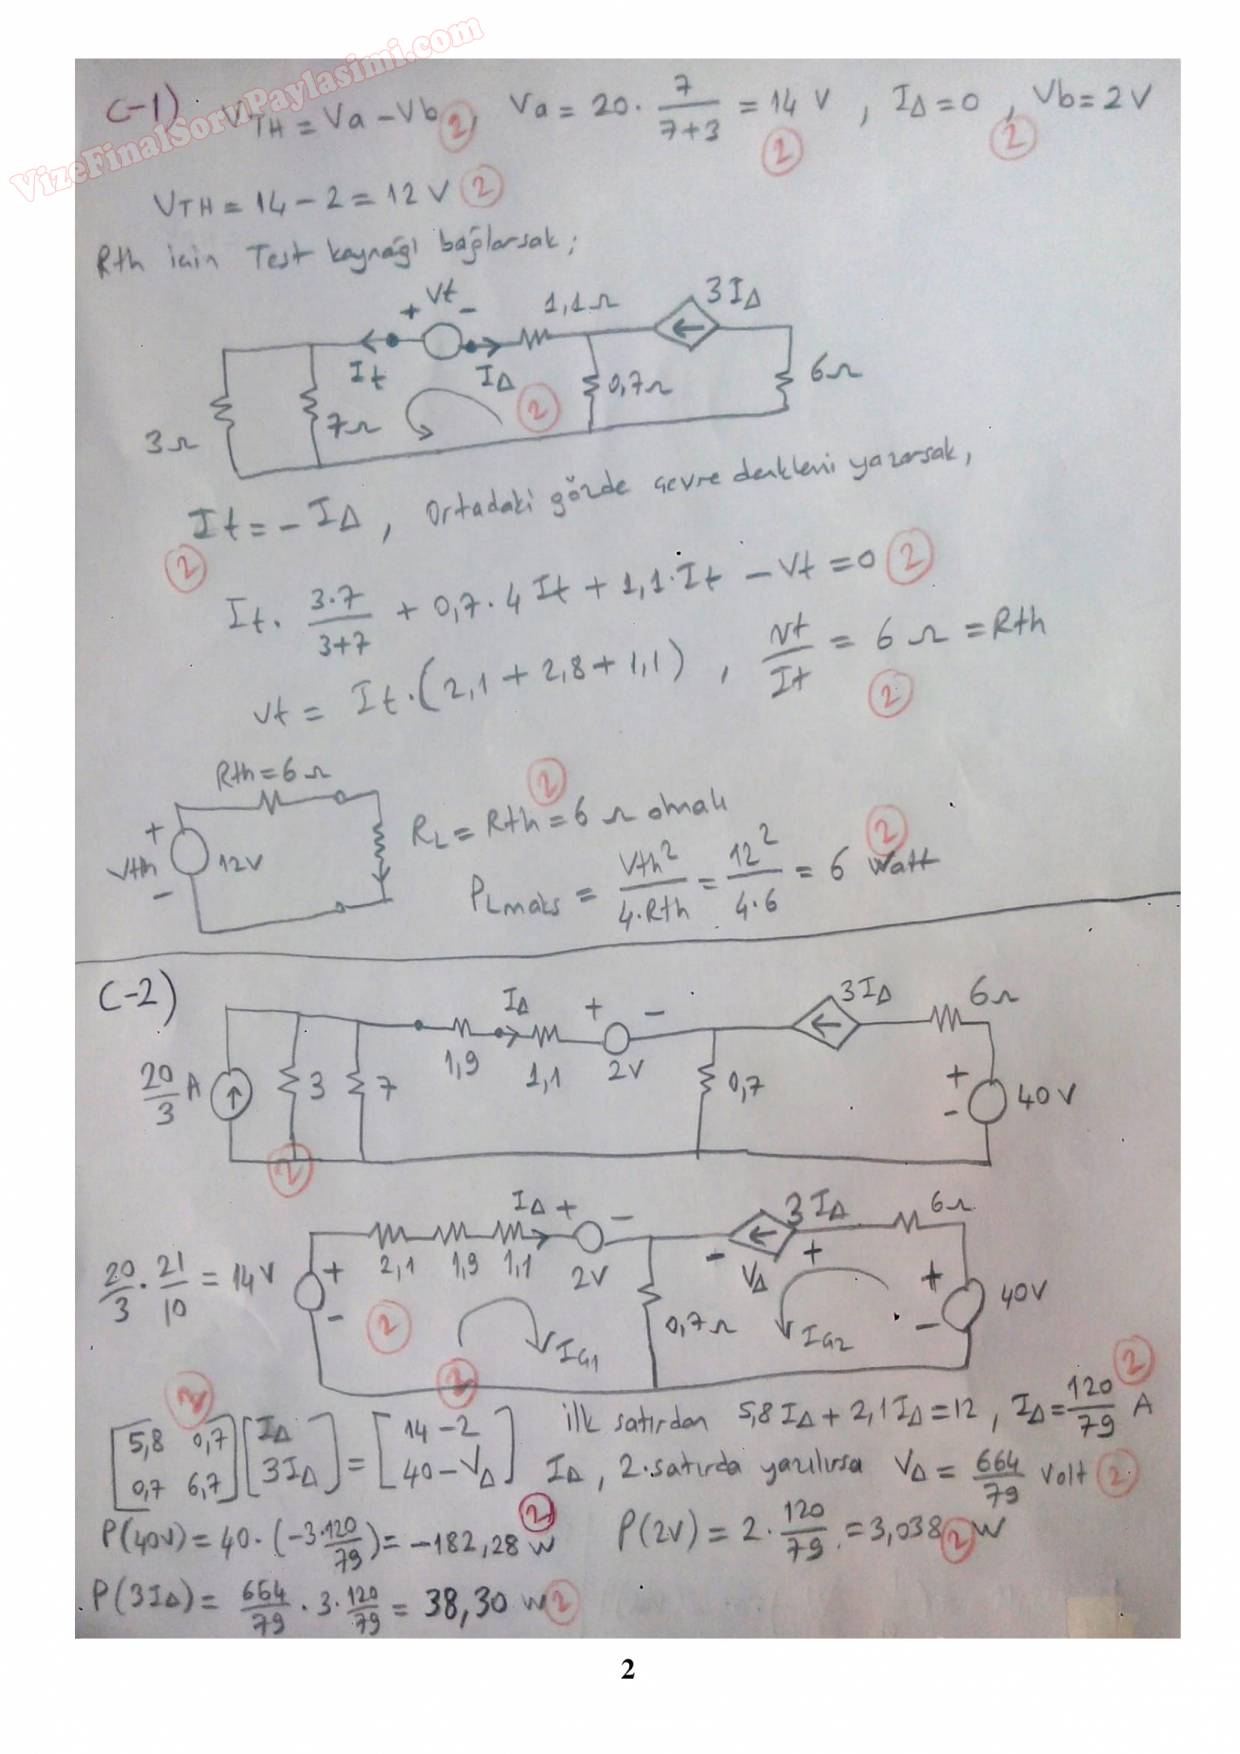 VizeFinalSoruPaylasimi.com
C-1) VTH = Va - Vb (2), Va = 20 · 7/(7+3) = 14 V (2), I∆ = 0, Vb = 2 V (2)
VTH = 14 - 2 = 12 V (2)
Rth için Test kaynağı bağlarsak;
+ Vt - 1,1Ω 3I∆
It I∆ (2) 0,7Ω 6Ω
3Ω 7Ω
It = - I∆, Ortadaki gözde çevre denklemi yazarsak,
(2)
It · 3·7/(3+7) + 0,7·4It + 1,1·It - Vt = 0 (2)
Vt = It·(2,1 + 2,8 + 1,1), Vt/It = 6 Ω = Rth
(2)
Rth = 6Ω
+ Vth - 12V
RL = Rth = 6 Ω olmalı (2)
PLmaks = Vth²/(4·Rth) = 12²/(4·6) = 6 Watt (2)
C-2)
I∆ + - 3I∆ 6Ω
20/3 A 3 7 1,9 1,1 2V 0,7 + - 40V
(2)
I∆ + - 3I∆ 6Ω
20/3 · 21/10 = 14V + - 2,1 1,9 1,1 2V - V∆ + + - 40V
(2) 0,7Ω
IG1 IG2
(2) (2) (2)
[5,8 0,7; 0,7 6,7] [I∆; 3I∆] = [14 - 2; 40 - V∆] ilk satırdan 5,8 I∆ + 2,1 I∆ = 12, I∆ = 120/79 A
I∆, 2. satırda yazılırsa V∆ = 664/79 Volt (2)
P(40V) = 40·(-3·120/79) = -182,28 W (2) P(2V) = 2 · 120/79 = 3,038 W (2)
P(3I∆) = 664/79 · 3 · 120/79 = 38,30 W (2)
2